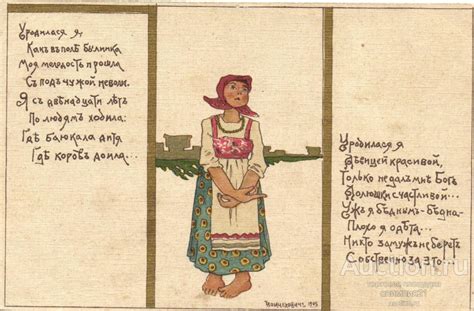 Уродилася я,
Какъ въ полѣ былинка
Моя молодость прошла
Съ подъ чужой неволи.
Я съ двѣнадцати лѣтъ
По людямъ ходила:
Гдѣ баюкала дитя
Гдѣ коровъ доила...
Уродилася я
Дѣвицей красивой,
Только не далъ мнѣ Богъ
Долюшки счастливой...
Ужъ я бѣдным-бѣдна-
Плохо я одѣта...
Никто замужъ не беретъ
Собственно за это!..
Auction.ru